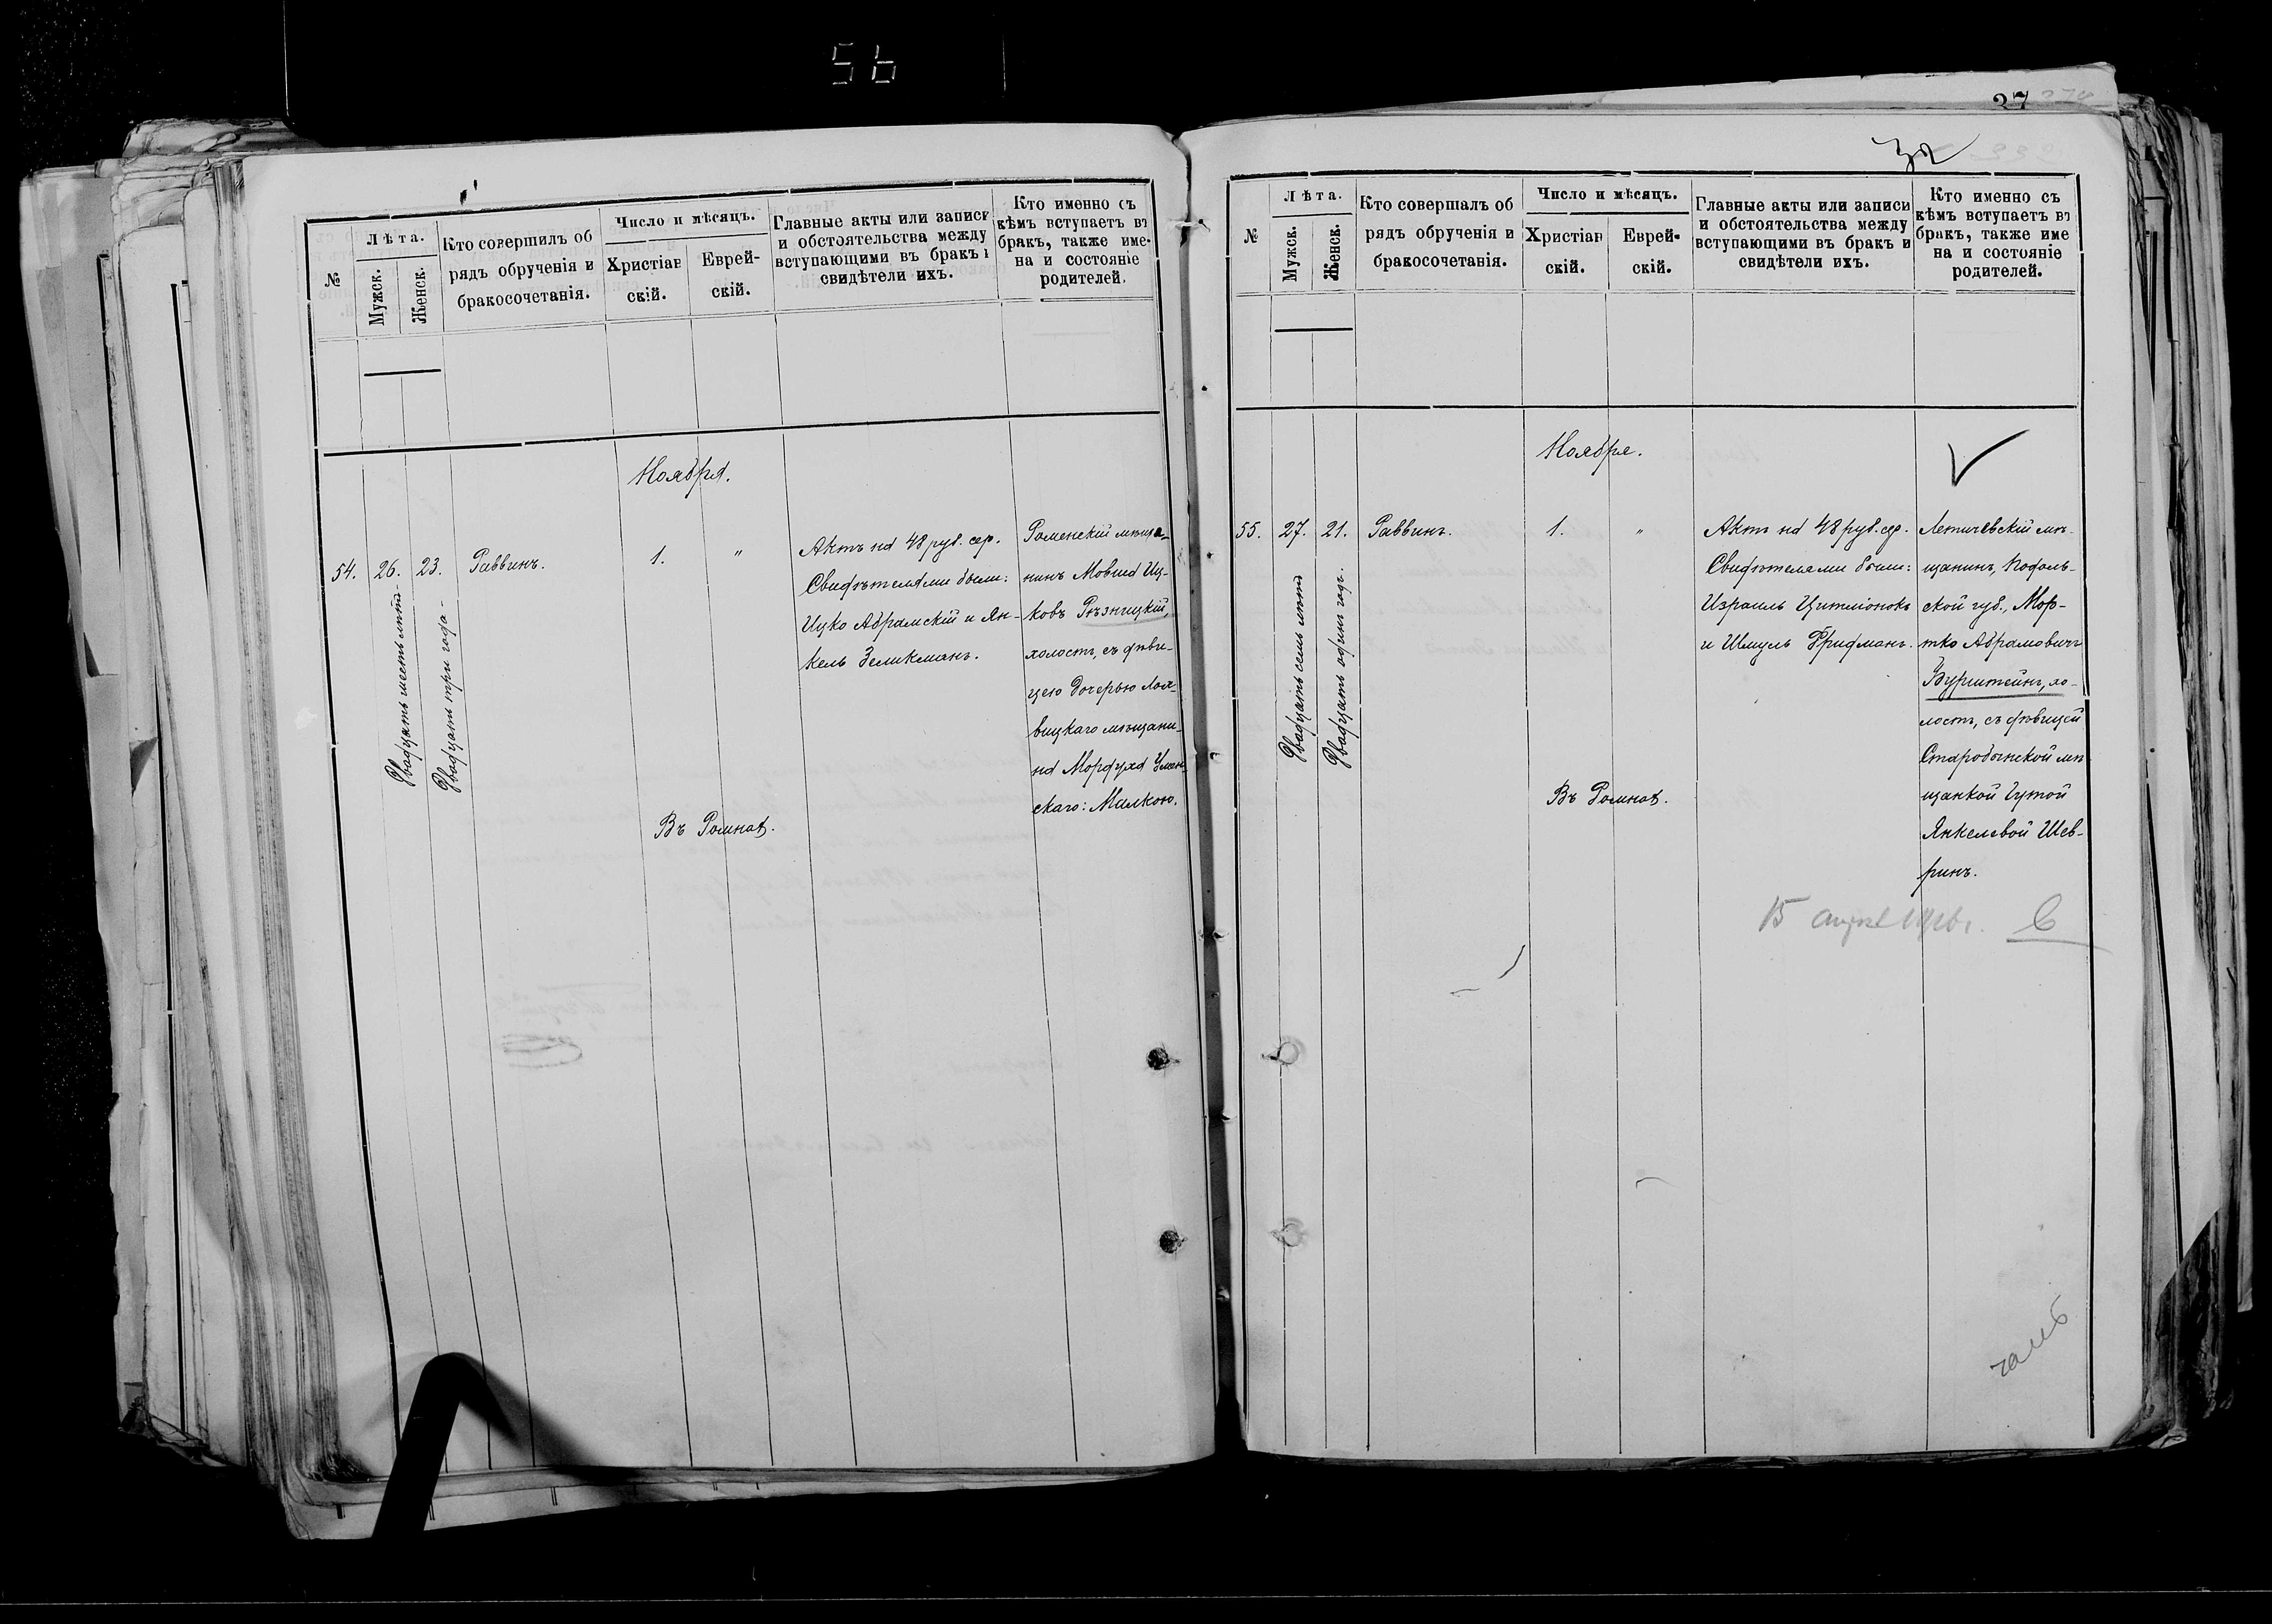 56
№
Лѣта.
Мужск.
Женск.
Кто совершилъ об
рядъ обрученія и
бракосочетанія.
Число и мѣсяцъ.
Христіан
скій.
Еврей-
скій.
Главные акты или записи
и обстоятельства между
вступающими въ бракъ и
свидѣтели ихъ.
Кто именно съ
кѣмъ вступаетъ въ
бракъ, также име-
на и состояніе
родителей.
Ноября.
54.
26.
Двадцать шесть лѣтъ
23.
Двадцать три года
Раввинъ.
1.
"
Въ Ромнахъ.
Актъ на 48 руб. сер.
Свидѣтелями были:
Ицко Абрамскій и Ян-
кель Зеликманъ.
Роменскій мѣща-
нинъ Мовша Иц-
ковъ Рѣзницкій,
холостъ, съ дѣви-
цею дочерью
вицкаго мѣщани-
на Мордуха Уман-
скаго: Милкою.
37
32
№
Лѣта.
Мужск.
Женск.
Кто совершалъ об
рядъ обрученія и
бракосочетанія.
Число и мѣсяцъ.
Христіан
скій.
Еврей-
скій.
Главные акты или записи
и обстоятельства между
вступающими въ бракъ и
свидѣтели ихъ.
Кто именно съ
кѣмъ вступаетъ въ
бракъ, также име
на и состояніе
родителей.
Ноября.
55.
27.
Двадцать семь лѣтъ
21.
Двадцать одинъ годъ.
Раввинъ.
1.
"
Въ Ромнахъ.
Актъ на 48 руб. сер.
Свидѣтелями были:
Израиль Цитліонокъ
и Шмуль Фридманъ.
Летичевскій мѣ-
щанинъ, Подоль-
ской губ., Мор-
тко Абрамовичъ
Бурштейнъ, хо-
лостъ, съ дѣвицей
Старобынской мѣ-
щанкой Гутой
Янкелевой Шев-
ринъ.
15